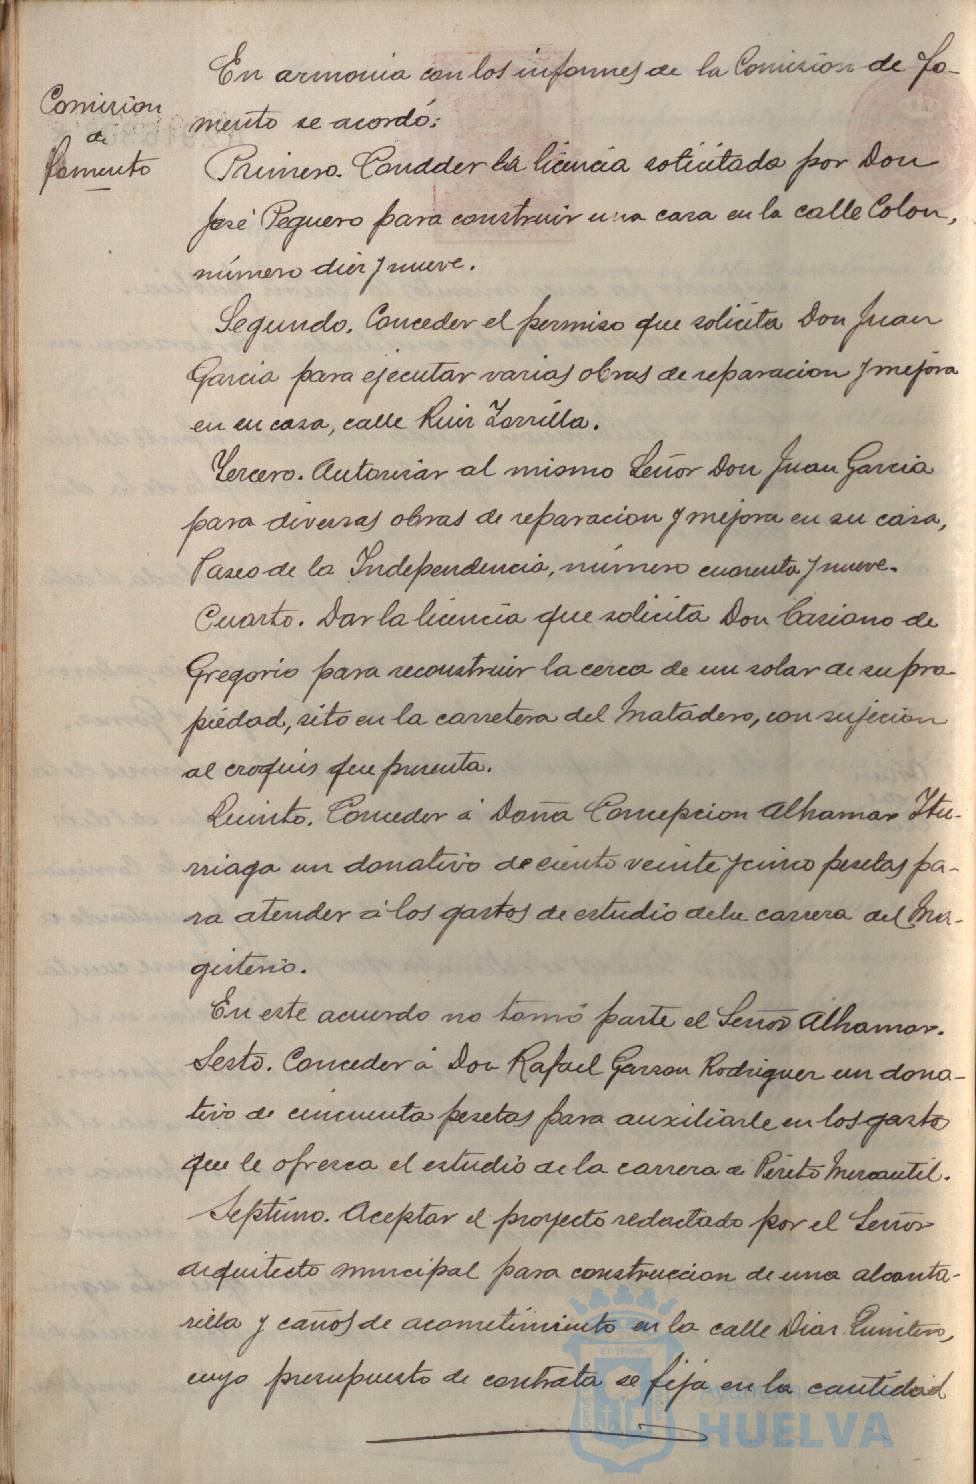 Comision
de
fomento
En armonia con los informes de la Comision de Fo-
mento se acordó:
Primero. Condder la licencia solicitada por Don
José Peguero para construir una casa en la calle Colon,
número diez y nueve.
Segundo. Conceder el permiso que solicita Don Juan
Garcia para ejecutar varias obras de reparacion y mejora
en su casa, calle Ruiz Zorrilla.
Tercero. Autorizar al mismo Señor Don Juan Garcia
para diversas obras de reparacion y mejora en su casa,
Paseo de la Independencia, número cuarenta y nueve.
Cuarto. Dar la licencia que solicita Don Casiano de
Gregorio para reconstruir la cerca de un solar de su pro-
piedad, sito en la carretera del Matadero, con sujecion
al croquis que presenta.
Quinto. Conceder á Doña Concepcion Alhamar Itu-
rriaga un donativo de ciento veinte y cinco pesetas pa-
ra atender á los gastos de estudio de la carrera del Ma-
gisterio.
En este acuerdo no tomó parte el Señor Alhamar.
Sesto. Conceder á Don Rafael Garzon Rodriguez un dona-
tivo de cincuenta pesetas para auxiliarle en los gasto
que le ofresca el estudio de la carrera de Périto Mercantil.
Septimo. Aceptar el proyecto redactado por el Señor
arquitecto municipal para construccion de una alcanta-
rilla y caños de acometimiento en la calle Diaz Quintero,
cuyo presupuesto de contrata se fija en la cantidad
Ayuntamiento de
HUELVA